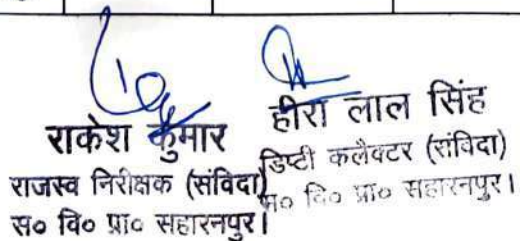 राकेश कुमार
राजस्व निरीक्षक (संविदा)
स० वि० प्रा० सहारनपुर।
हीरा लाल सिंह
डिप्टी कलैक्टर (संविदा)
स० वि० प्रा० सहारनपुर।